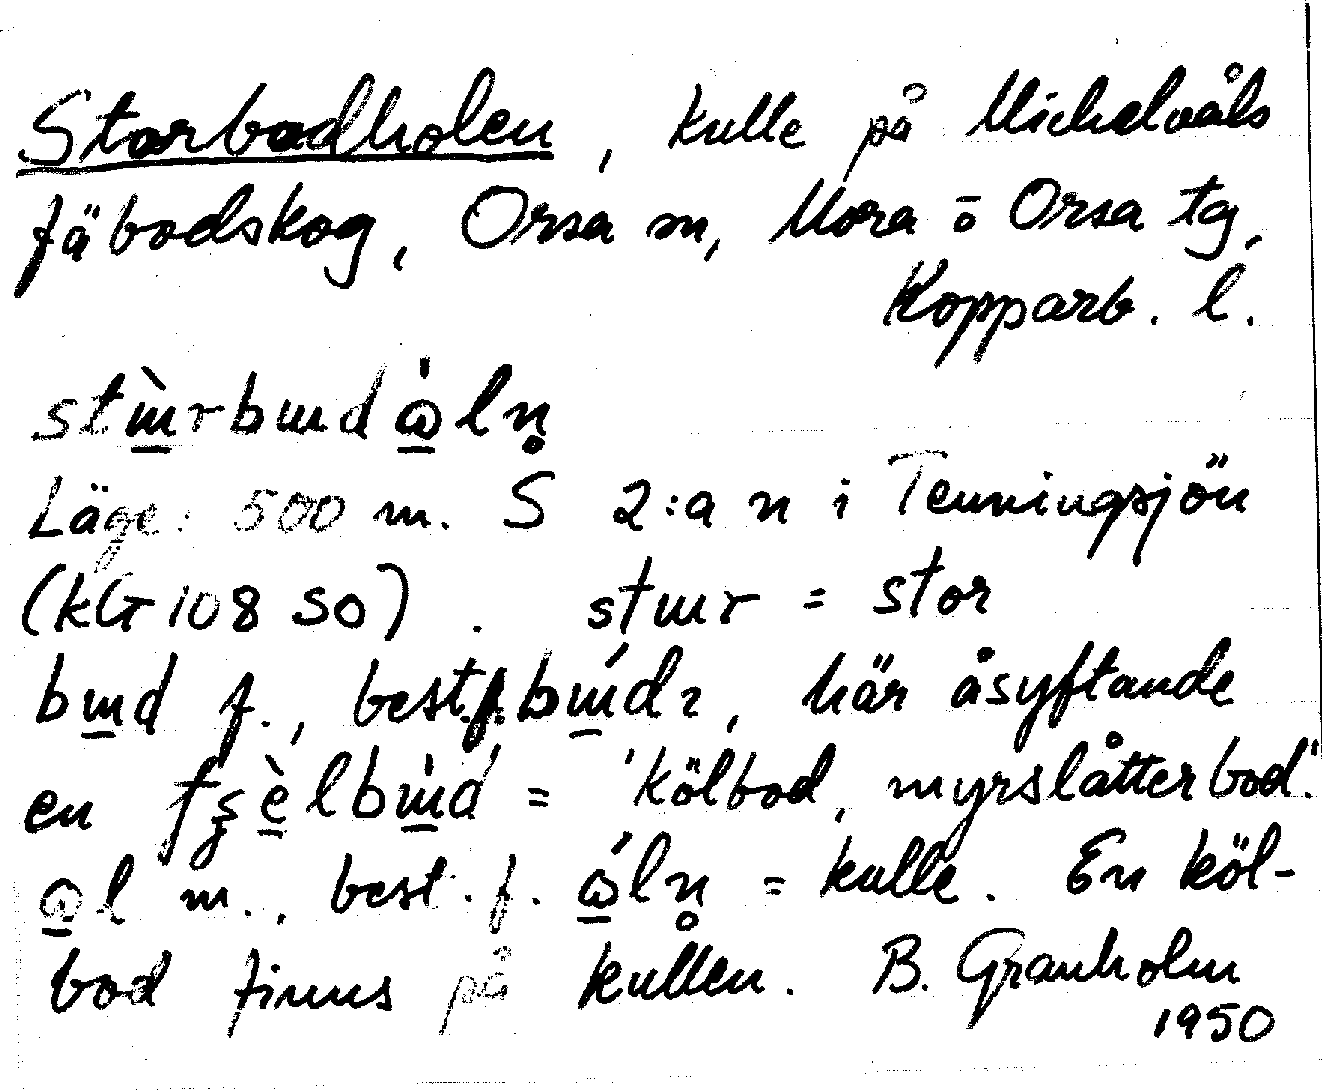 Storbodholen, kulle på Michelvåls
fäbodskog, Orsa sn, Mora o Orsa tg,
Kopparb. l.
stɯ̀rbɯdω̍ln̥
Läge: 500 m. S 2:a n i Tenningsjön
(kG 108 SO). stɯr = stor
bɯd f., best.f. bɯ́dɿ, här åsyftande
en tʂèlbɯ̍d = 'kölbod, myrslåtterbod'.
ωl m., best. f. ώln̥ = kulle. En köl-
bod finns på kullen. B. Granholm
1950